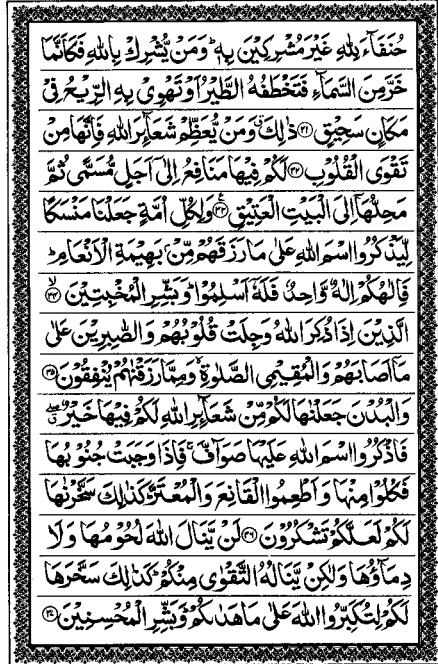 حُنَفَآءَ لِلّٰهِ غَيْرَ مُشْرِكِيْنَ بِهٖ ؕ وَمَنْ يُّشْرِكْ بِاللّٰهِ فَكَاَنَّمَا
خَرَّ مِنَ السَّمَآءِ فَتَخْطَفُهُ الطَّيْرُ اَوْ تَهْوِيْ بِهِ الرِّيْحُ فِيْ
مَكَانٍ سَحِيْقٍ ۝۳۱ ذٰلِكَ ۗ وَمَنْ يُّعَظِّمْ شَعَآئِرَ اللّٰهِ فَاِنَّهَا مِنْ
تَقْوَى الْقُلُوْبِ ۝۳۲ لَكُمْ فِيْهَا مَنَافِعُ اِلٰٓى اَجَلٍ مُّسَمًّى ثُمَّ
مَحِلُّهَآ اِلَى الْبَيْتِ الْعَتِيْقِ ۝۳۳ وَلِكُلِّ اُمَّةٍ جَعَلْنَا مَنْسَكًا
لِّيَذْكُرُوا اسْمَ اللّٰهِ عَلٰى مَا رَزَقَهُمْ مِّنْۢ بَهِيْمَةِ الْاَنْعَامِ ؕ
فَاِلٰهُكُمْ اِلٰهٌ وَّاحِدٌ فَلَهٗٓ اَسْلِمُوْا ؕ وَبَشِّرِ الْمُخْبِتِيْنَ ۝۳۴
الَّذِيْنَ اِذَا ذُكِرَ اللّٰهُ وَجِلَتْ قُلُوْبُهُمْ وَالصّٰبِرِيْنَ عَلٰى
مَآ اَصَابَهُمْ وَالْمُقِيْمِي الصَّلٰوةِ ۙ وَمِمَّا رَزَقْنٰهُمْ يُنْفِقُوْنَ ۝۳۵
وَالْبُدْنَ جَعَلْنٰهَا لَكُمْ مِّنْ شَعَآئِرِ اللّٰهِ لَكُمْ فِيْهَا خَيْرٌ ۖ
فَاذْكُرُوا اسْمَ اللّٰهِ عَلَيْهَا صَوَآفَّ ۚ فَاِذَا وَجَبَتْ جُنُوْبُهَا
فَكُلُوْا مِنْهَا وَاَطْعِمُوا الْقَانِعَ وَالْمُعْتَرَّ ؕ كَذٰلِكَ سَخَّرْنٰهَا
لَكُمْ لَعَلَّكُمْ تَشْكُرُوْنَ ۝۳۶ لَنْ يَّنَالَ اللّٰهَ لُحُوْمُهَا وَلَا
دِمَآؤُهَا وَلٰكِنْ يَّنَالُهُ التَّقْوٰى مِنْكُمْ ؕ كَذٰلِكَ سَخَّرَهَا
لَكُمْ لِتُكَبِّرُوا اللّٰهَ عَلٰى مَا هَدٰىكُمْ ؕ وَبَشِّرِ الْمُحْسِنِيْنَ ۝۳۷